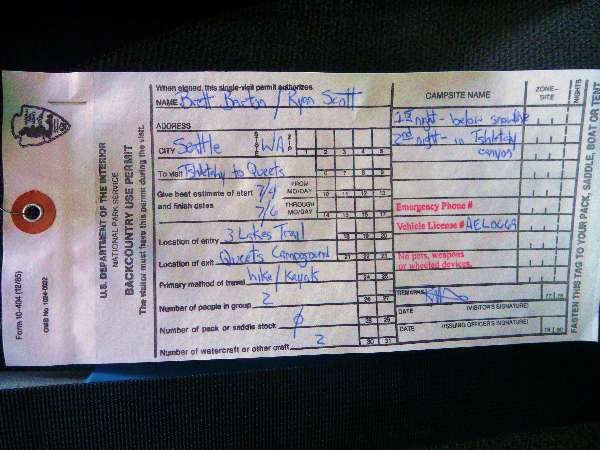 Form 10-404 (12/85)
OMB No. 1024-0022
U.S. DEPARTMENT OF THE INTERIOR
NATIONAL PARK SERVICE
BACKCOUNTRY USE PERMIT
The visitor must have this permit during the visit.
When signed, this single-visit permit authorizes
NAME Brett Barton / Ryan Scott
ADDRESS
CITY Seattle STATE WA ZIP
To visit Tshletshy to Queets
Give best estimate of start 7/4 FROM MO/DAY
and finish dates 7/6 THROUGH MO/DAY
Location of entry 3 Lakes Trail
Location of exit Queets Campground
Primary method of travel hike/kayak
Number of people in group 2
Number of pack or saddle stock ϕ
Number of watercraft or other craft 2
1 2 3 4 5
6 7 8 9
10 11 12 13
14 15 16 17
18 19 20
21 22 23
24 25
26 27
28 29
30 31
CAMPSITE NAME
ZONE-SITE
NIGHTS
1st night - below snowline
2nd night - in Tshletshy
canyon
Emergency Phone #
Vehicle License #
No pets, weapons
or wheeled devices.
REMARKS
DATE (VISITOR'S SIGNATURE)
DATE (ISSUING OFFICER'S SIGNATURE)
FASTEN THIS TAG TO YOUR PACK, SADDLE, BOAT OR TENT